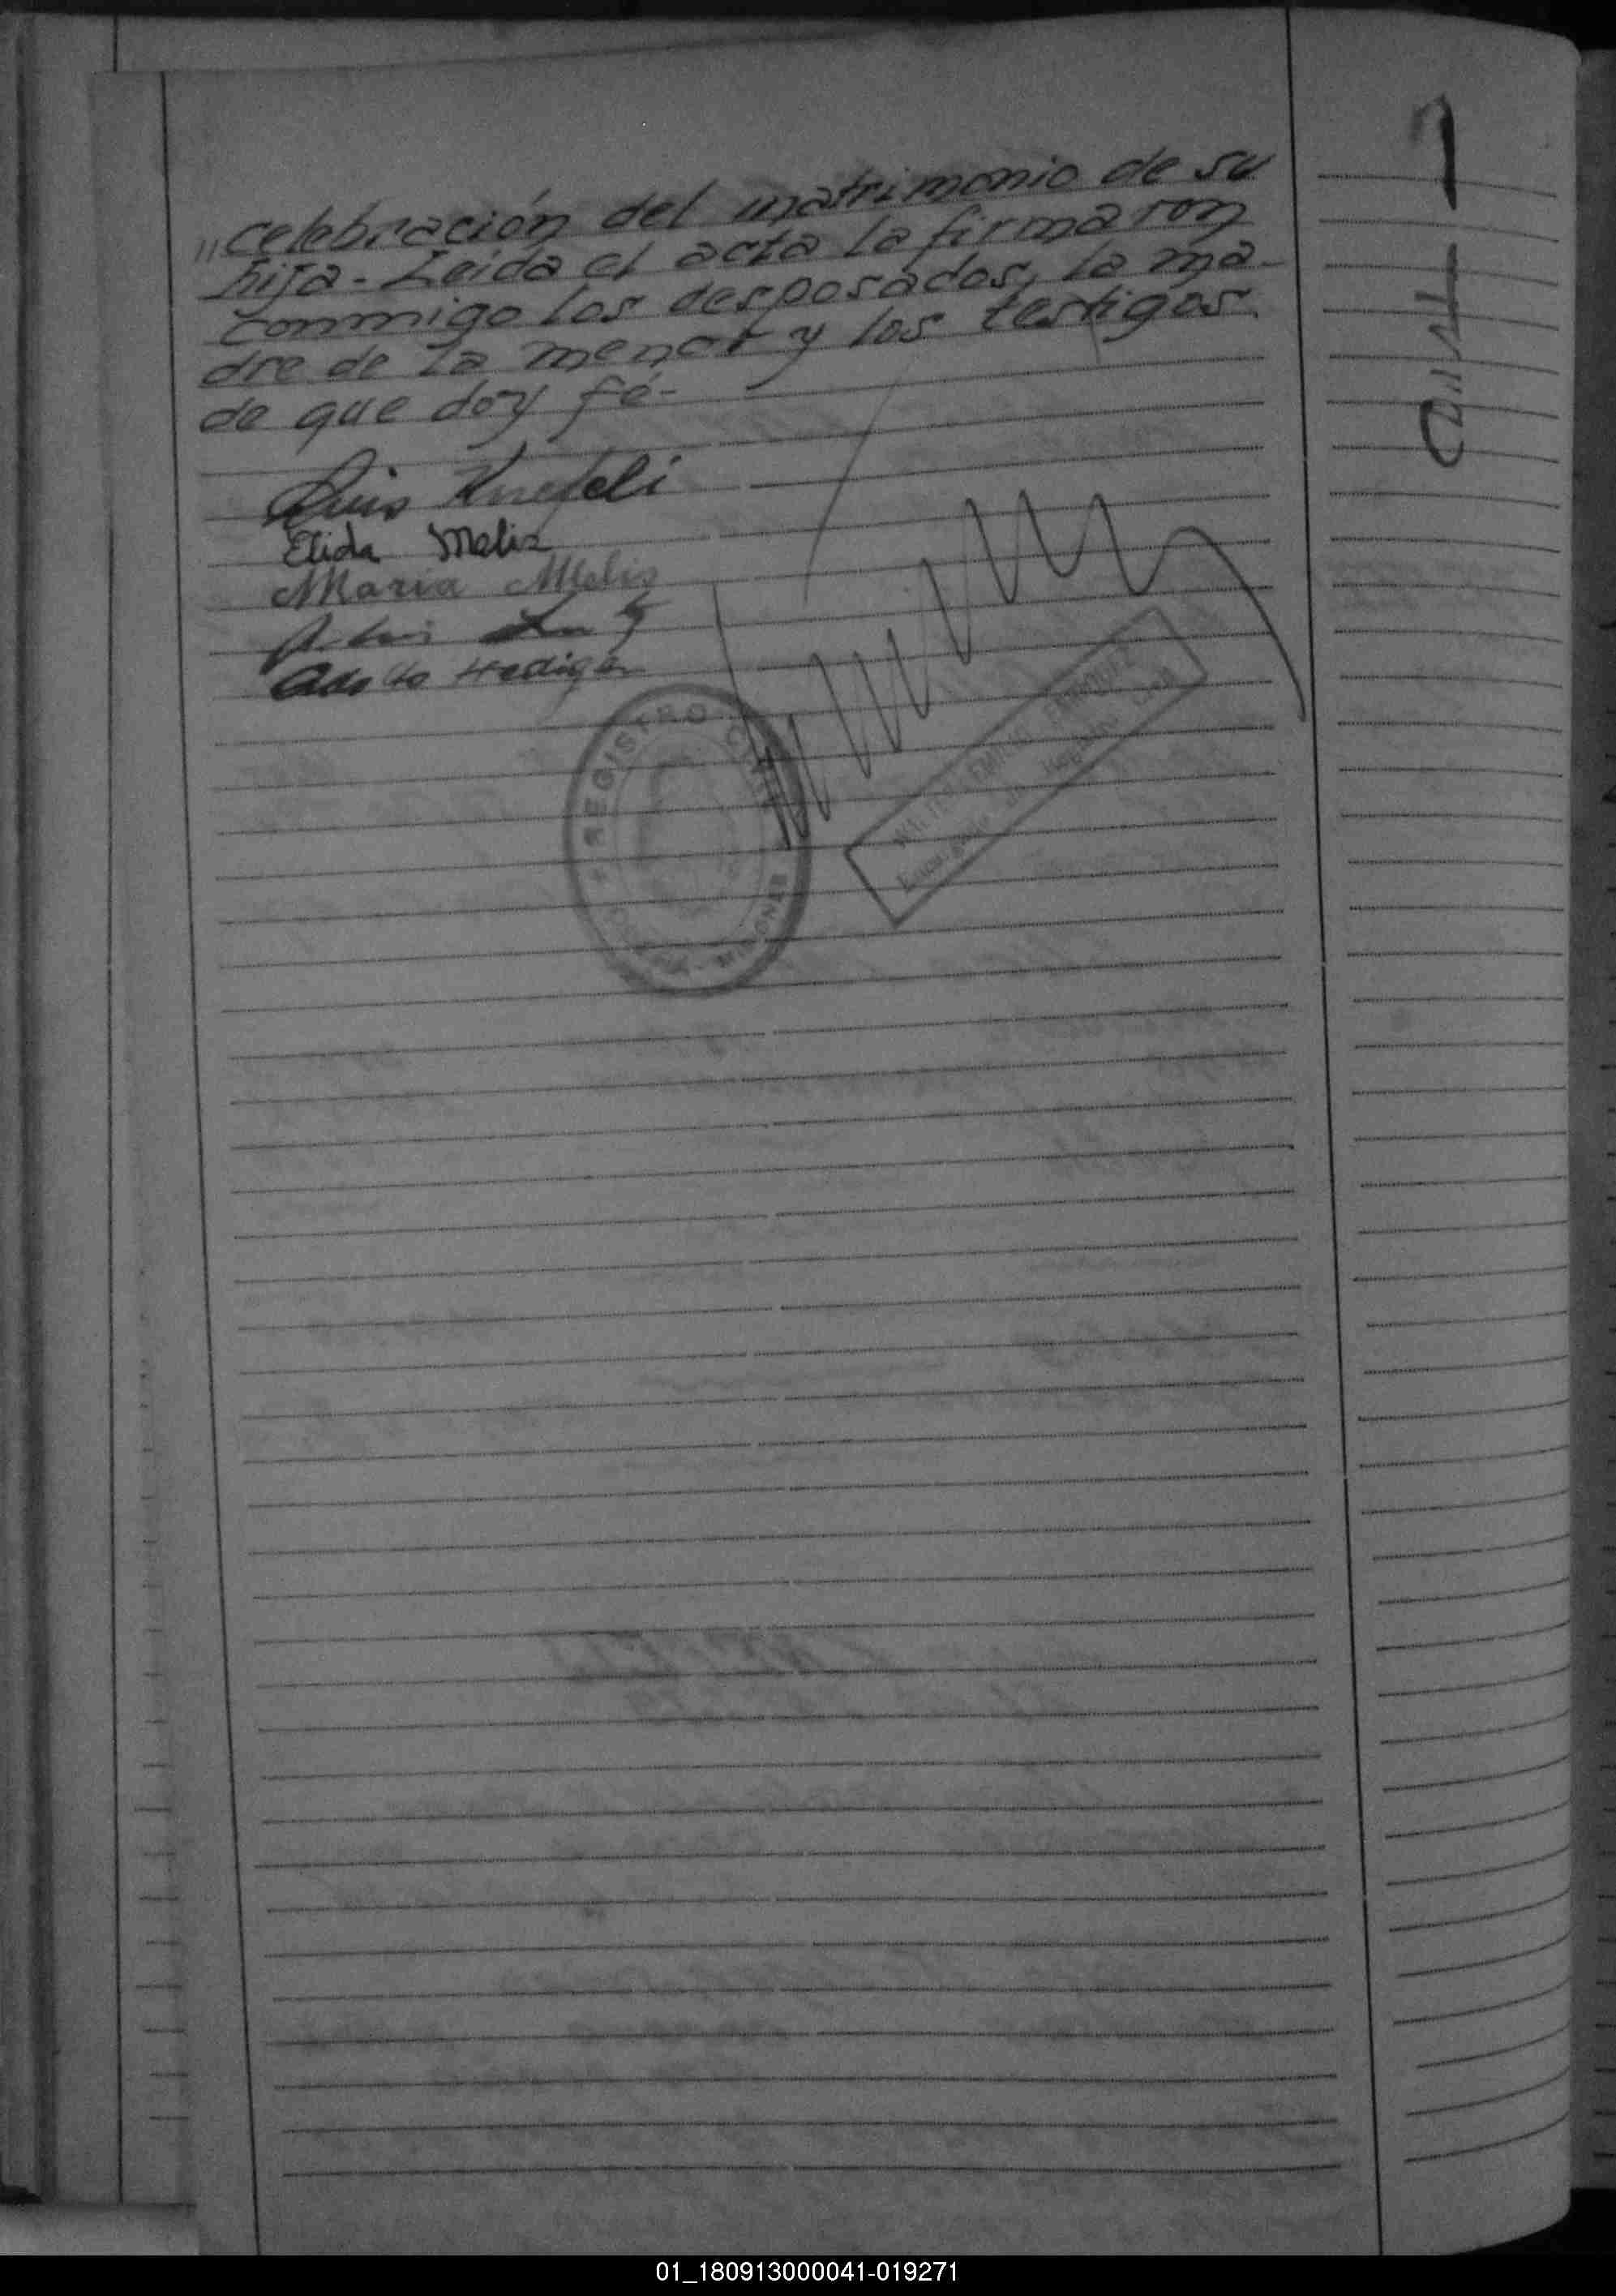 "celebración del matrimonio de su
hija - Leida el acta la firmaron
conmigo los desposados, la ma-
dre de la menor y los testigos
de que doy fé-
Luis Knefeli
Elida Melis
Maria Melis
Adolfo Hediger
REGISTRO CIVIL
MISIONES
Encargado Registro Civil
01_180913000041-019271